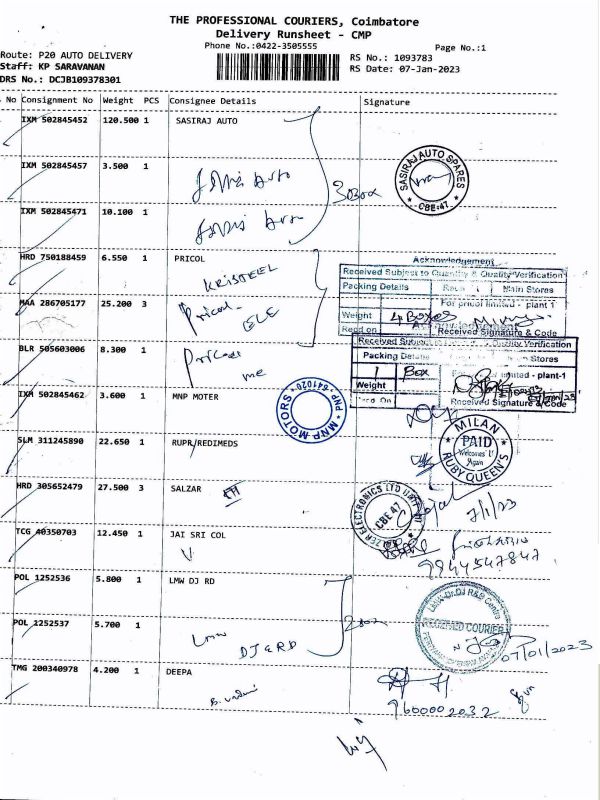 THE PROFESSIONAL COURIERS, Coimbatore
Delivery Runsheet - CMP
Phone No.:0422-3505555
Page No.:1
Route: P20 AUTO DELIVERY
RS No.: 1093783
Staff: KP SARAVANAN
RS Date: 07-Jan-2023
DRS No.: DCJB109378301
No Consignment No Weight PCS Consignee Details Signature
IXM 502845452 120.500 1 SASIRAJ AUTO
IXM 502845457 3.500 1
3 Box
SASIRAJ AUTO SPARES
CBE-47
IXM 502845471 10.100 1
HRD 750188459 6.550 1 PRICOL
KRISTEEL
Acknowledgement
Received Subject to Quantity & Quality Verification
Packing Details Main Stores
For pricol limited - plant 1
Weight 4 Boxes
Recd on Received Signature & Code
MAA 286705177 25.200 3
Pricol
ELE
Acknowledgement
Received Subject to Quantity & Quality Verification
Packing Details Main Stores
1 Box
limited - plant-1
Weight
Recd. On Received Signature & Code
BLR 505603006 8.300 1
Pricol
me
IXM 502845462 3.600 1 MNP MOTER
MNP MOTORS
PNP-641020
MILAN
PAID
Welcomes U
Again
RUBY QUEEN'S
SLM 311245890 22.650 1 RUPR/REDIMEDS
HRD 305652479 27.500 3 SALZAR
CBE 47
7/1/23
TCG 40350703 12.450 1 JAI SRI COL
9944547847
POL 1252536 5.800 1 LMW DJ RD
POL 1252537 5.700 1
LMW
DJ & RD
2 Box
LMW-Dr.DJ R&D Centre
RECEIVED COURIER
07/01/2023
TMG 200340978 4.200 1 DEEPA
9600002032